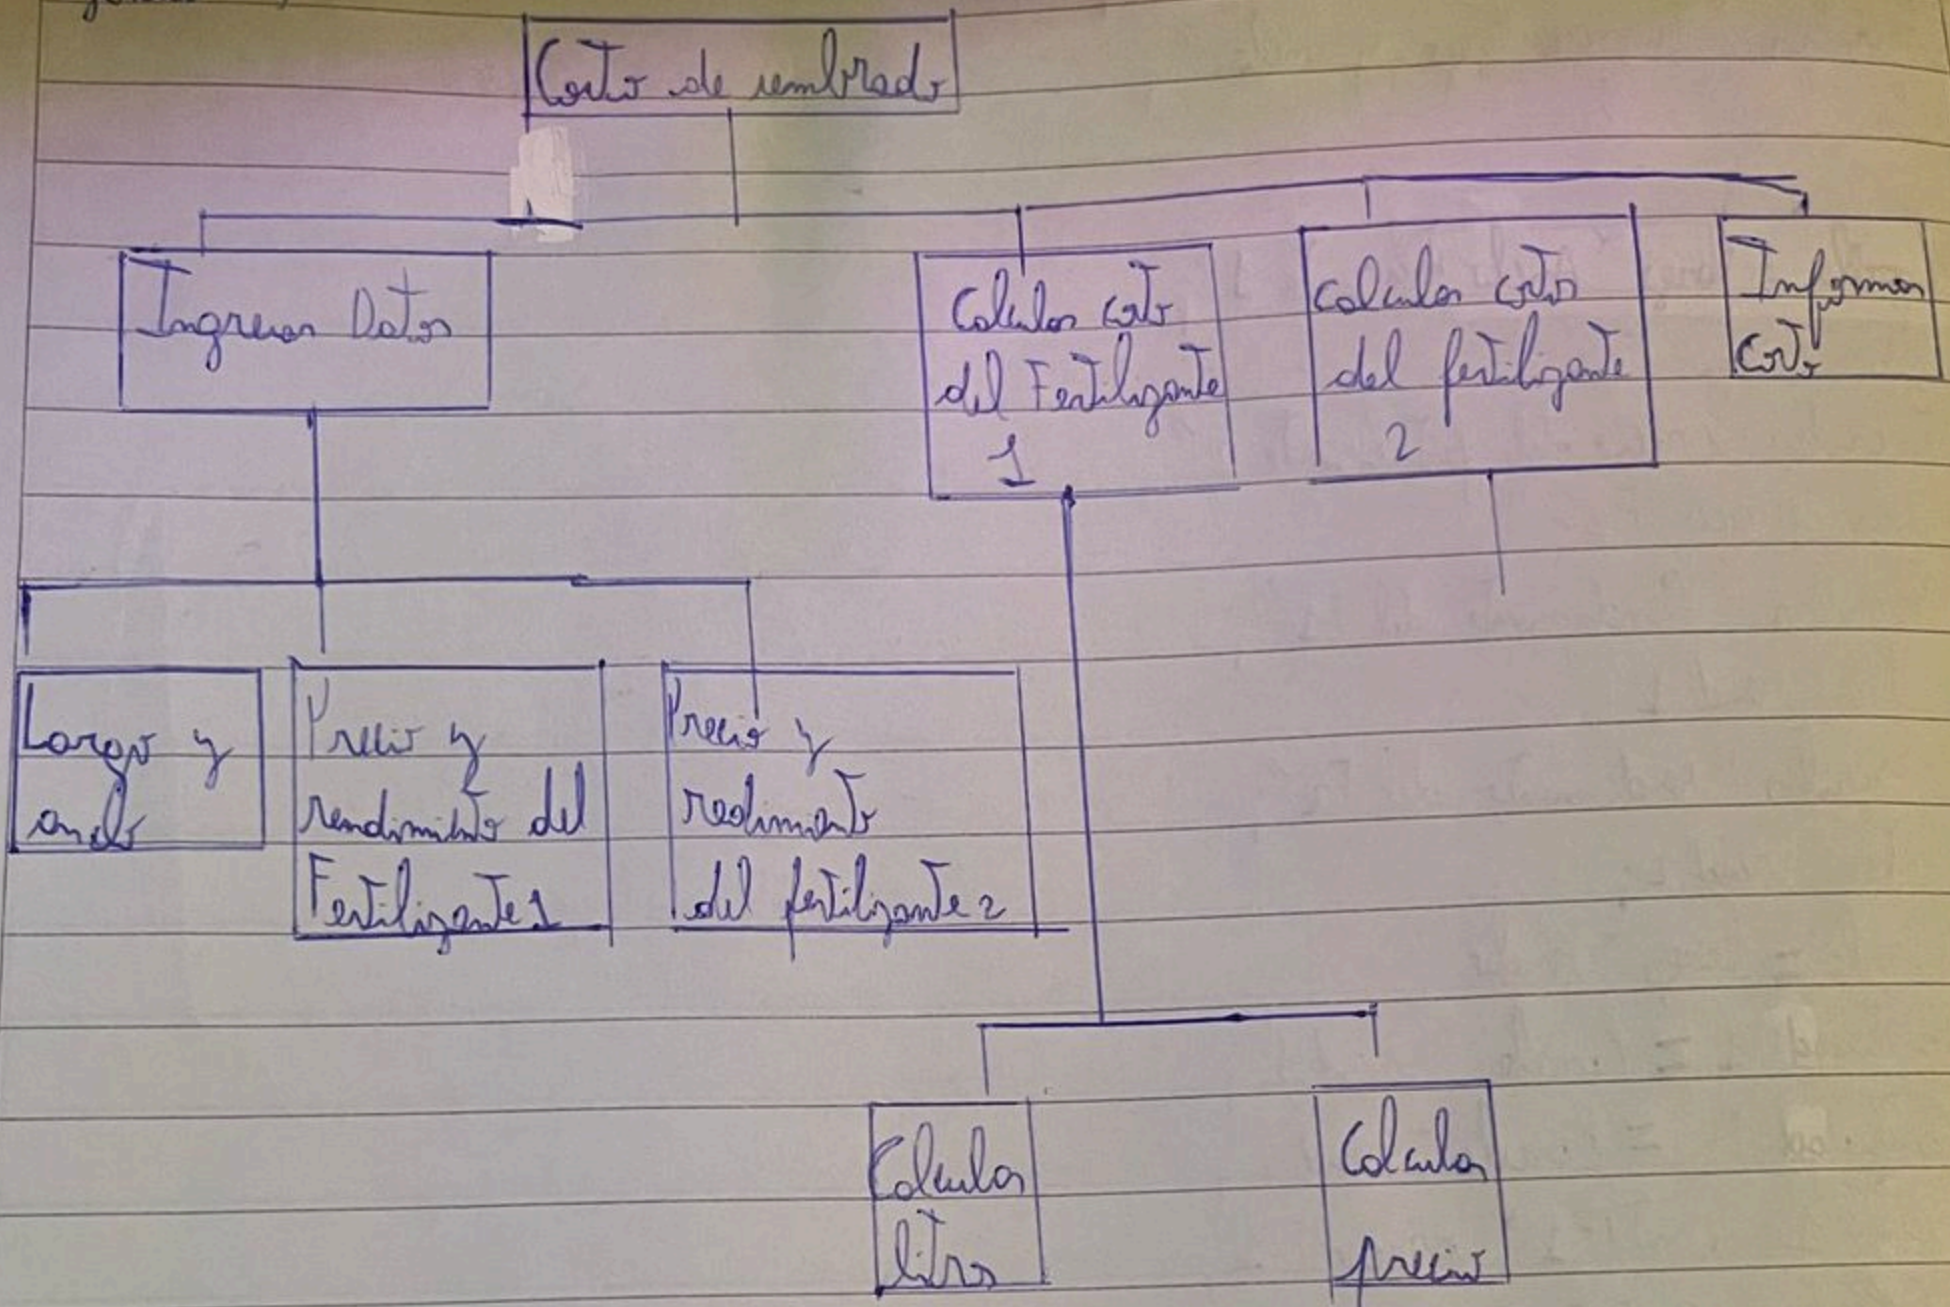 Costo de sembrado
Ingresar Datos
Calcular costo
del Fertilizante
1
Calcular costo
del fertilizante
2
Informar
Costo
Largo y
ancho
Precio y
rendimiento del
Fertilizante 1
Precio y
redimiento
del fertilizante 2
Calcular
litros
Calcular
precio